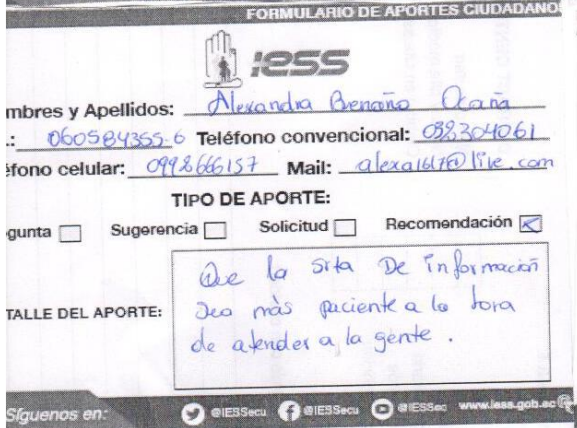 FORMULARIO DE APORTES CIUDADANOS
IESS
mbres y Apellidos: Alexandra Brenaño Ocaña
.: 060584355-6 Teléfono convencional: 032304061
éfono celular: 0998666157 Mail: alexa1617@live.com
TIPO DE APORTE:
gunta Sugerencia Solicitud Recomendación
Que la srta De informacion
TALLE DEL APORTE: Sea màs paciente a la hora
de atender a la gente.
Síguenos en: @IESSecu @IESSecu @IESSec www.iess.gob.ec